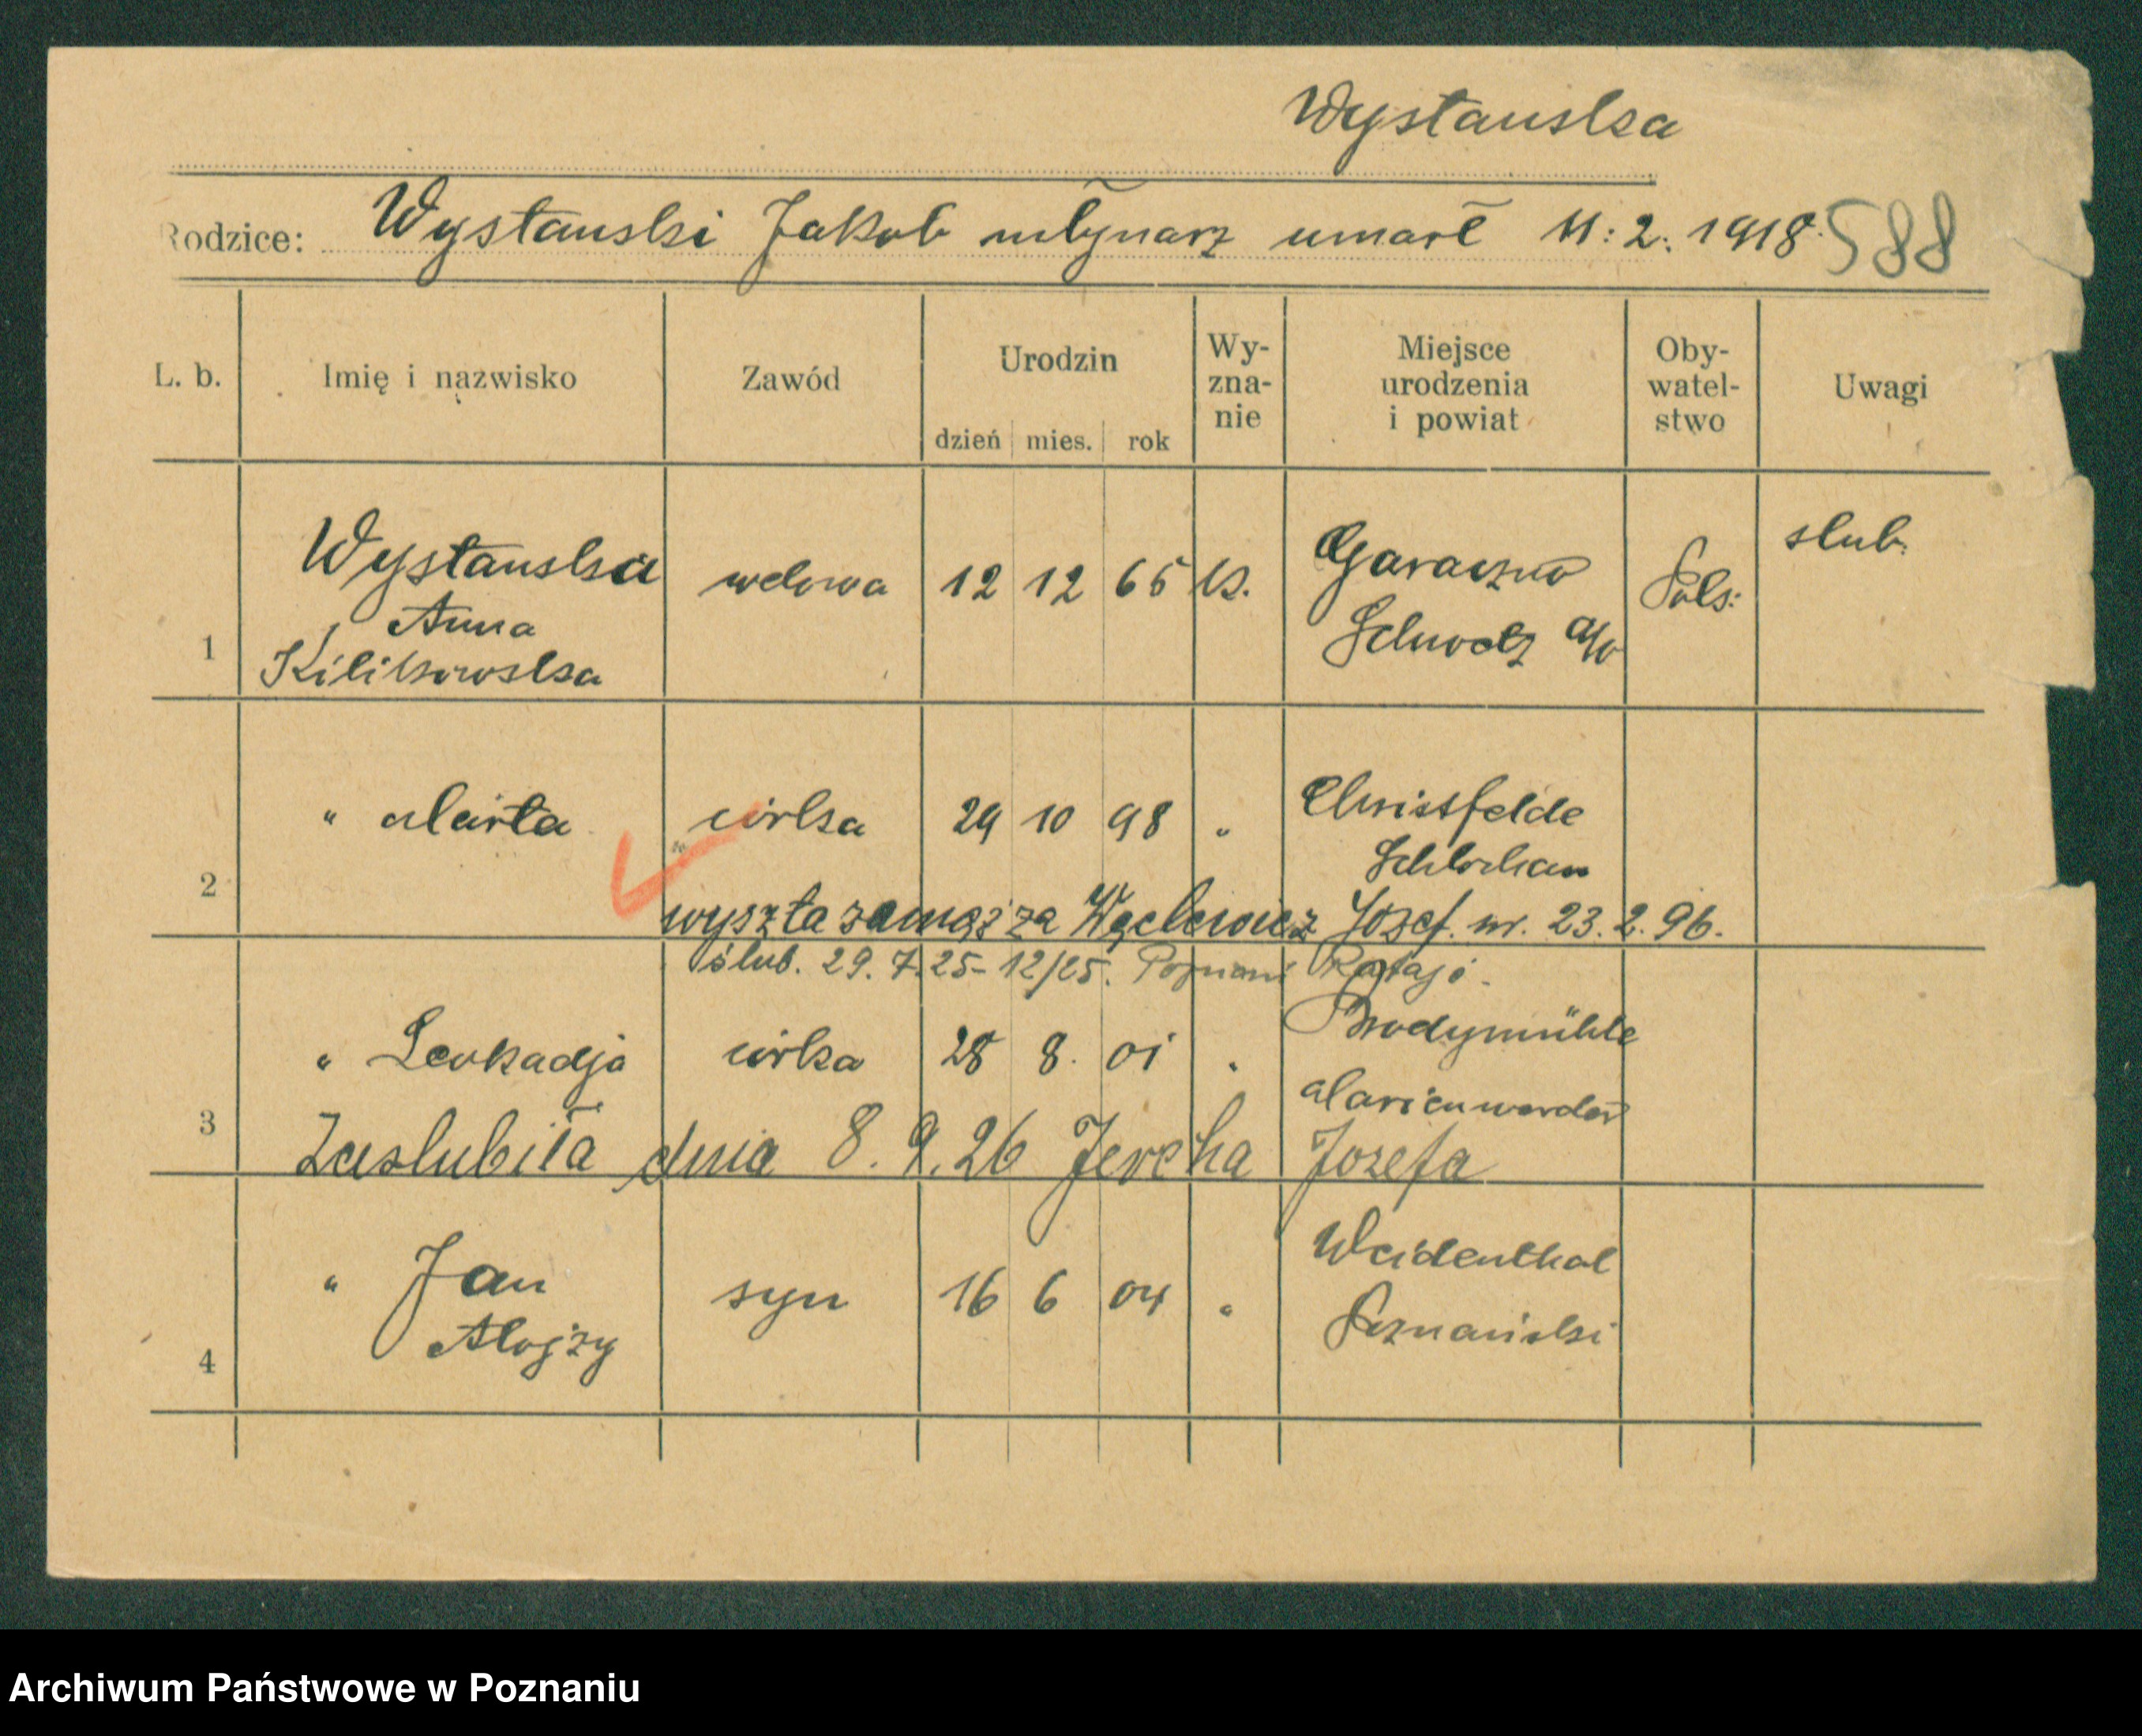 Wystanska
Rodzice: Wystanski Jakob młynarz umarł 11. 2. 1918. 588
L. b. Imię i nazwisko Zawód Urodzin dzień mies. rok Wy-zna-nie Miejsce urodzenia i powiat Oby-watel-stwo Uwagi
1 Wystanska wdowa 12 12 65 k. Pols: slub.
Anna
Kilikowska
2 " Marta córka 29 10 98 " Christfelde
Schlochau
wyszła zamąż za Węclewicz Józef. ur. 23.2.96.
ślub. 29. 7. 25 - 12/25. Poznań Rataje.
3 " Leokadja córka 28 8. 01 " Brodymühle
Marienwerder
Zaslubiła dnia 8. 9. 26 Jercha Jozefa
4 " Jan syn 16 6 04 " Weidenthal
Alojzy Poznański
Archiwum Państwowe w Poznaniu